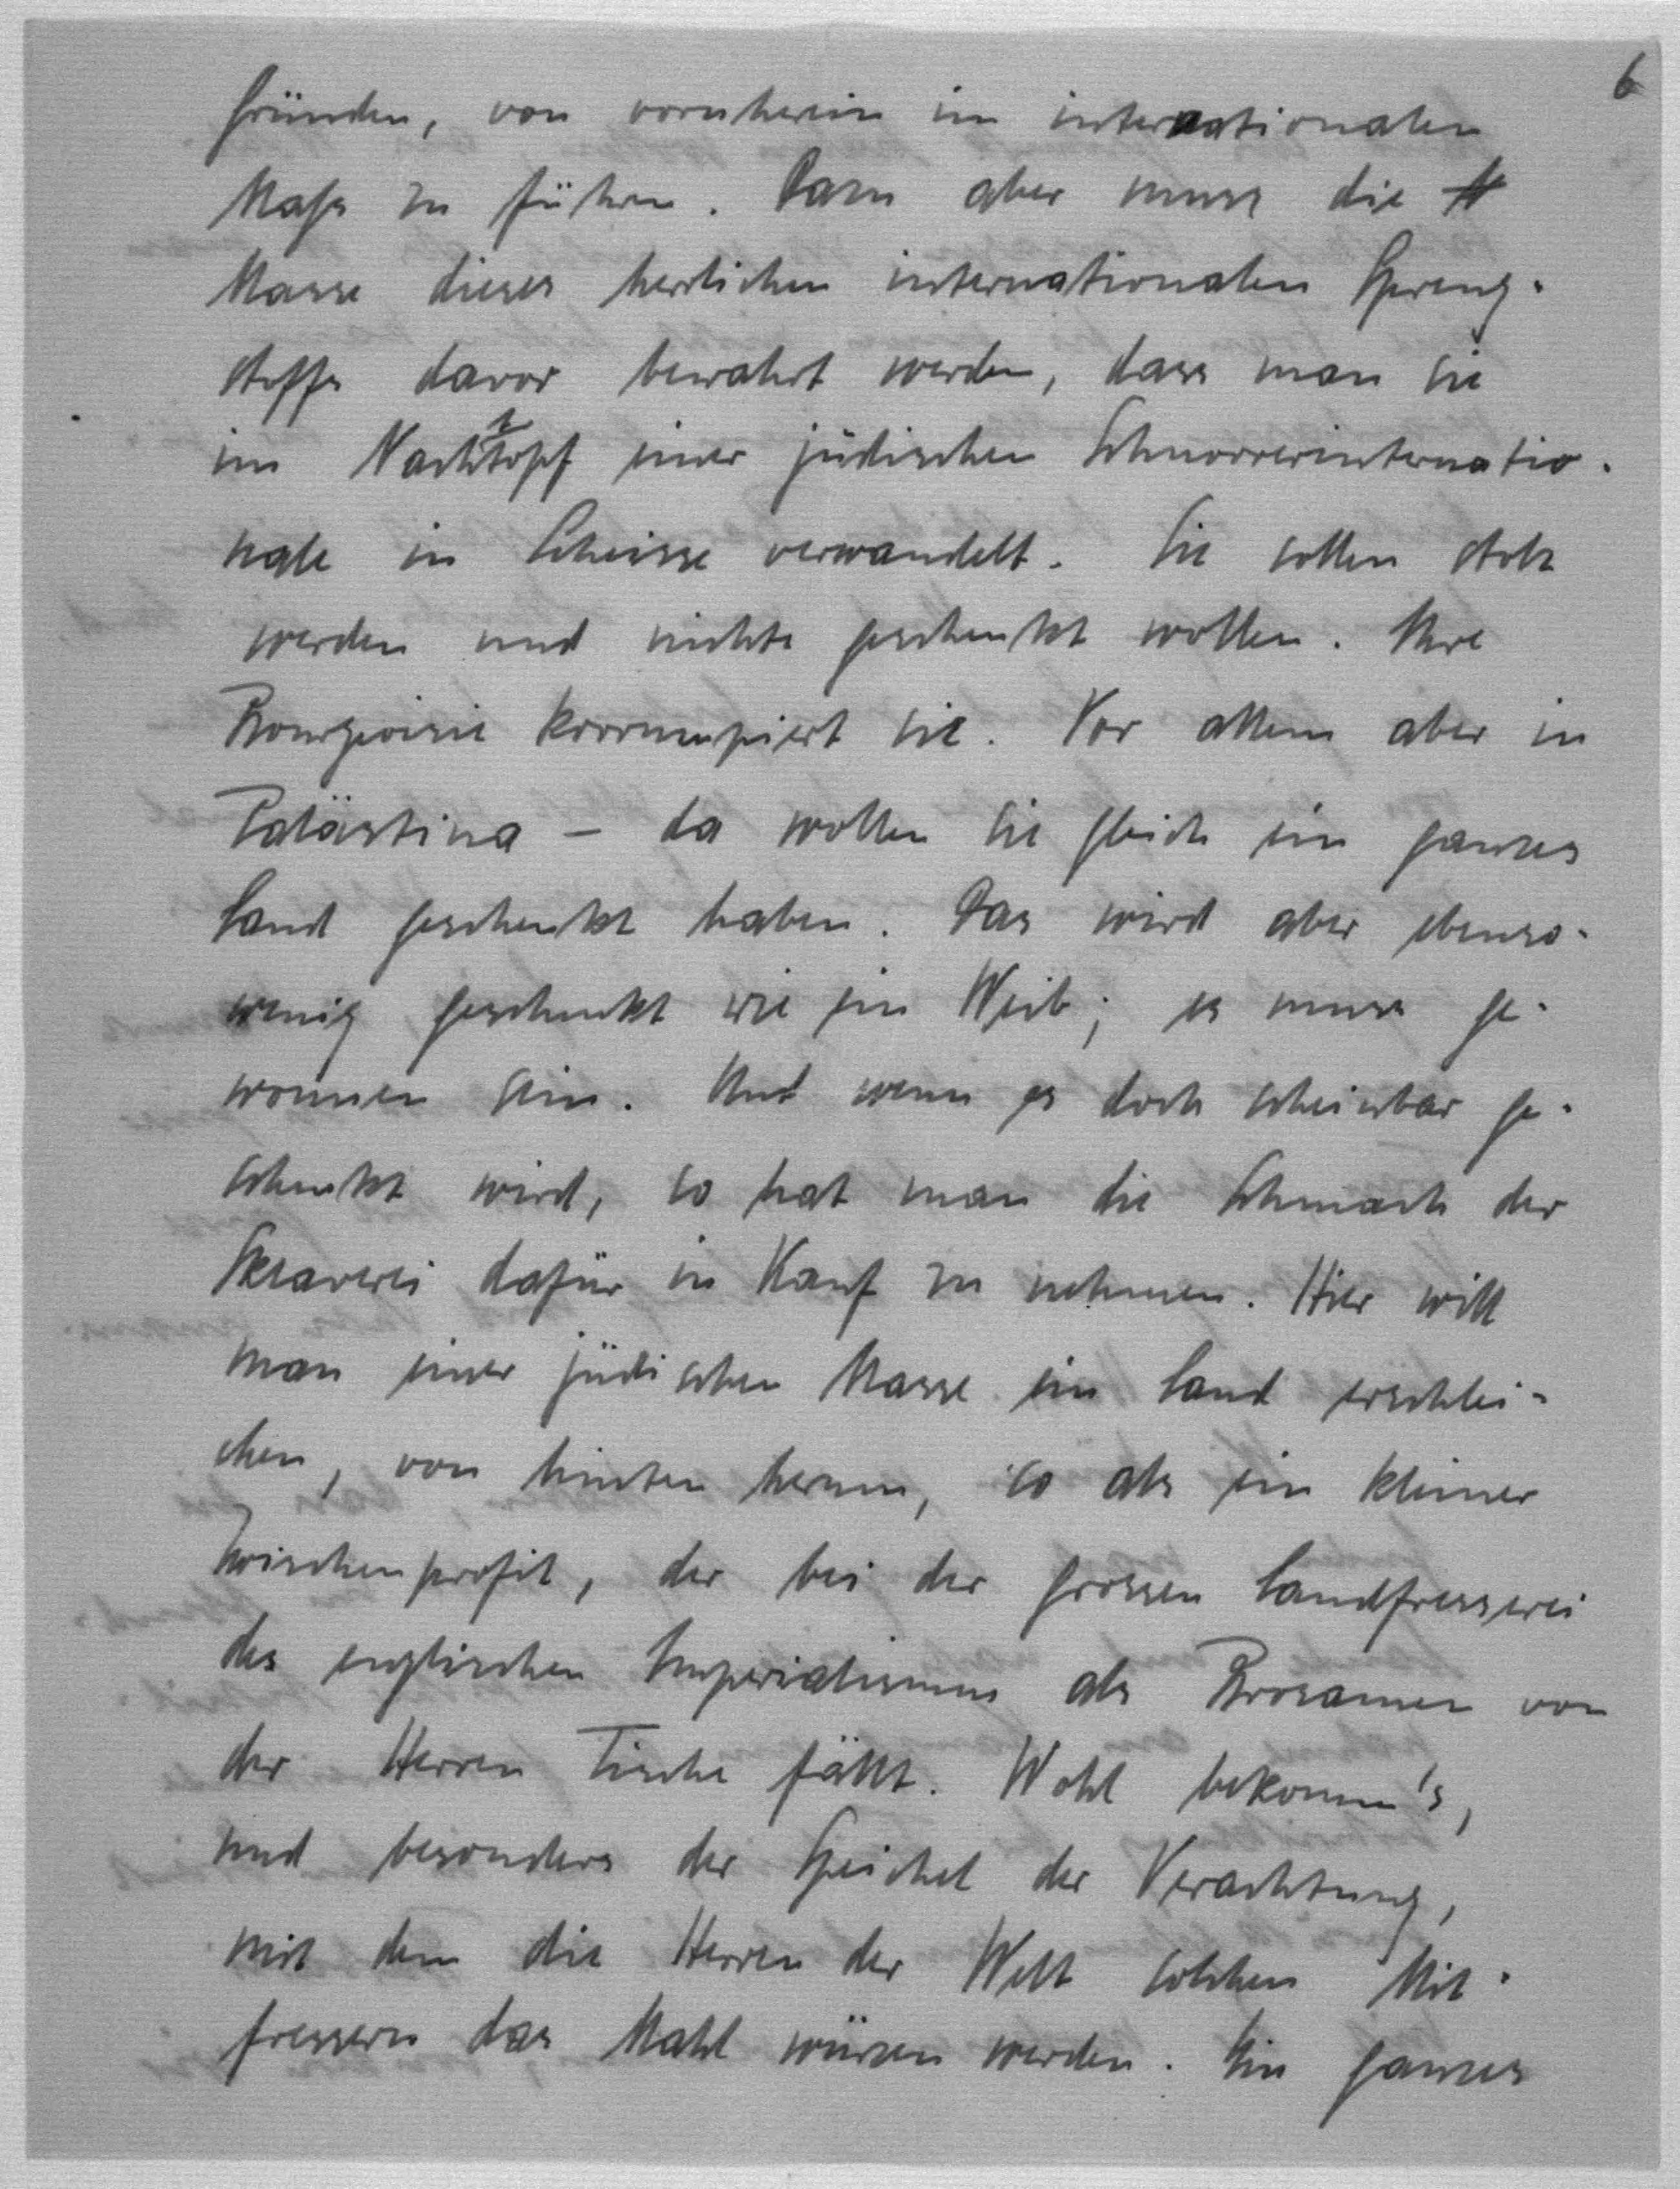 6
Gründen, von vornherein im internationalen
Mass zu führen. Dazu aber muss die
Masse dieses herrlichen internationalen Spreng-
stoffs davor bewahrt werden, dass man sie
im Nachttopf einer jüdischen Schnorrerinternatio-
nale in Scheisse verwandelt. Sie sollen stolz
werden und nichts geschenkt wollen. Ihre
Bourgeoisie korrumpiert sie. Vor allem aber in
Palästina – da wollen sie gleich ein ganzes
Land geschenkt haben. Das wird aber ebenso-
wenig geschenkt wie ein Weib; es muss ge-
wonnen sein. Und wenn es doch scheinbar ge-
schenkt wird, so hat man die Schmach der
Sklaverei dafür in Kauf zu nehmen. Hier will
man einer jüdischen Masse ein Land erschlei-
chen, von hinten herum, so als ein kleiner
Zwischenprofit, der bei der grossen Landfresserei
des englischen Imperialismus als Brosamen von
der Herren Tische fällt. Wohl bekomm's,
und besonders der Speichel der Verachtung,
mit dem die Herren der Welt solchen Mit-
fressern das Mahl würzen werden. Ein ganzes